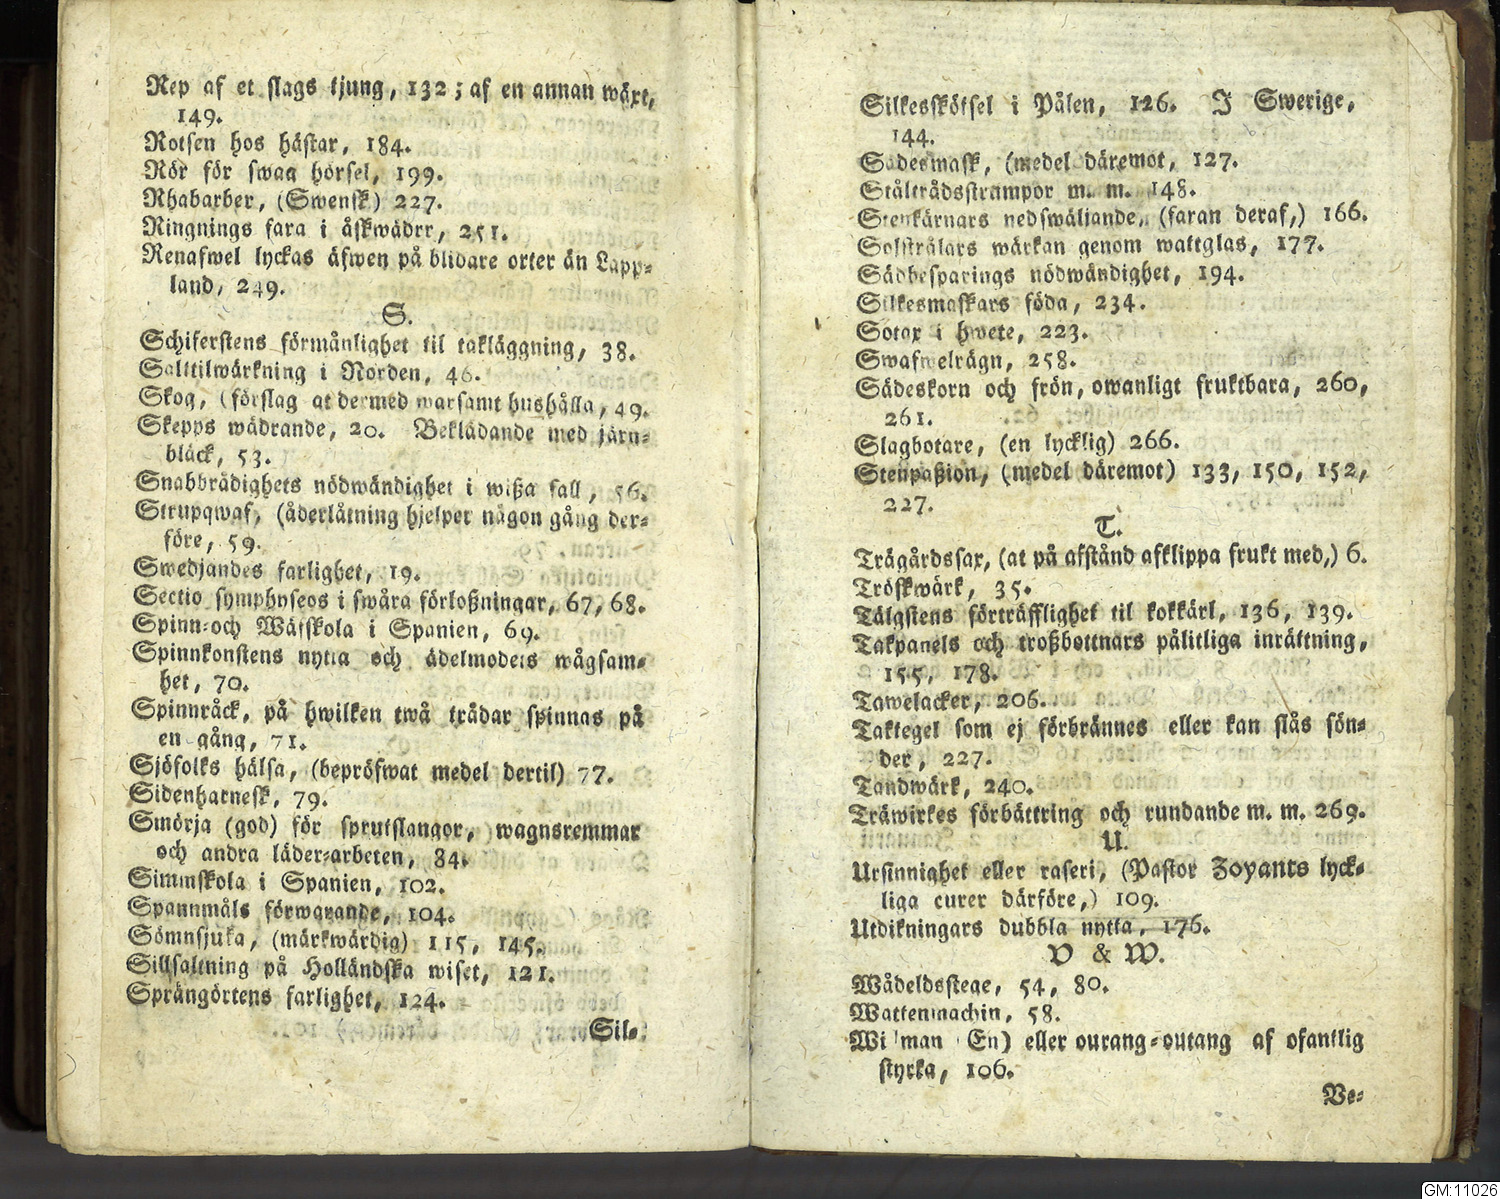 Rep af et slags ljung, 132; af en annan wäxt,
149.
Rotsen hos hästar, 184.
Rör för swag hörsel, 199.
Rhabarber, (Swensk) 227.
Ringnings fara i åskwäder, 251.
Renafwel lyckas äfwen på blidare orter än Lapp-
land, 249.
S.
Schiferstens förmånlighet til takläggning, 38.
Salttilwärkning i Norden, 46.
Skog, (förslag at dermed warsamt hushålla, 49.
Skepps wädrande, 20. Beklädande med järn-
bläck, 53.
Snabbrådighets nödwändighet i wißa fall, 56.
Strupqwaf, (åderlåtning hjelper någon gång der-
före, 59.
Swedjandes farlighet, 19.
Sectio symphyseos i swåra förloßningar, 67, 68.
Spinn- och Wäfskola i Spanien, 69.
Spinnkonstens nytta och ädelmodets wågsam-
het, 70.
Spinnråck, på hwilken twå trådar spinnas på
en gång, 71.
Sjöfolks hälsa, (bepröfwat medel dertil) 77.
Sidenharnesk, 79.
Smörja (god) för sprutslangor, wagnsremmar
och andra läder-arbeten, 84.
Simmskola i Spanien, 102.
Spannmåls förwarande, 104.
Sömnsjuka, (märkwärdig) 115, 145.
Sillsaltning på Holländska wiset, 121.
Sprängörtens farlighet, 124.
Sil-
Silkesskötsel i Pålen, 126. I Swerige,
144.
Sädesmask, (medel däremot, 127.
Ståltrådsstrumpor m. m. 148.
Stenkärnars nedswäljande, (faran deraf,) 166.
Solstrålars wärkan genom wattglas, 177.
Sädbesparings nödwändighet, 194.
Silkesmaskars föda, 234.
Sotax i hwete, 223.
Swafwelrägn, 258.
Sädeskorn och frön, owanligt fruktbara, 260,
261.
Slagbotare, (en lycklig) 266.
Stenpaßion, (medel däremot) 133, 150, 152,
227.
T.
Trägårdssax, (at på afstånd afklippa frukt med,) 6.
Tröskwärk, 35.
Tälgstens förträfflighet til kokkärl, 136, 139.
Takpanels och troßbottnars pålitliga inrättning,
155, 178.
Tawelacker, 206.
Taktegel som ej förbrännes eller kan slås sön-
der, 227.
Tandwärk, 240.
Träwirkes förbättring och rundande m. m. 269.
U.
Ursinnighet eller raseri, (Pastor Zoyants lyck-
liga curer därföre,) 109.
Utdikningars dubbla nytta, 176.
V & W.
Wådeldsstege, 54, 80.
Wattenmachin, 58.
Wildman En) eller ourang-outang af ofantlig
styrka, 106.
Ve-
GM:11026